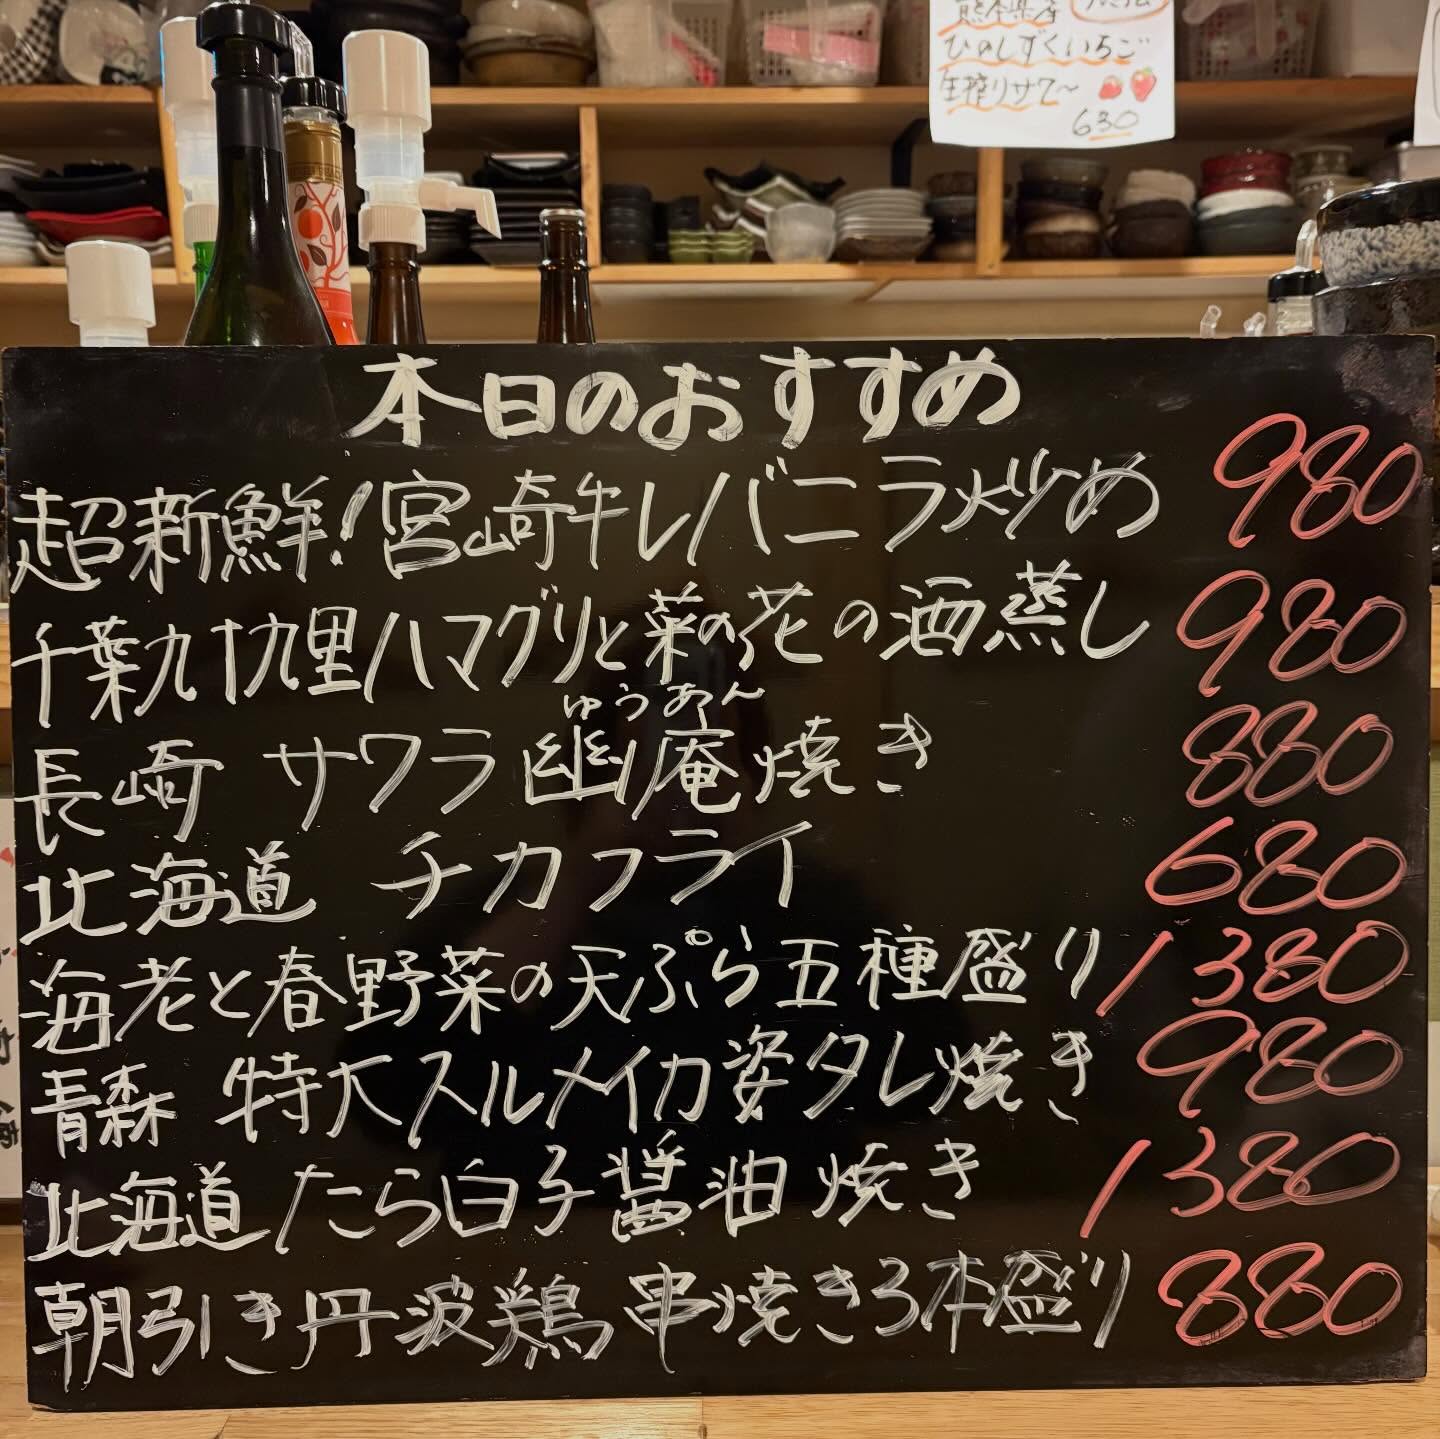 熊本県産 プレミアム
ひのしずくいちご
生搾りサワー
630
本日のおすすめ
超新鮮!宮崎牛レバニラ炒め 980
千葉九十九里ハマグリと菜の花の酒蒸し 980
ゆうあん
長崎 サワラ幽庵焼き 880
北海道 チカフライ 680
海老と春野菜の天ぷら五種盛り 1380
青森 特大スルメイカ姿タレ焼き 980
北海道 たら白子醤油焼き 1380
朝引き丹波鶏 串焼き3本盛り 880